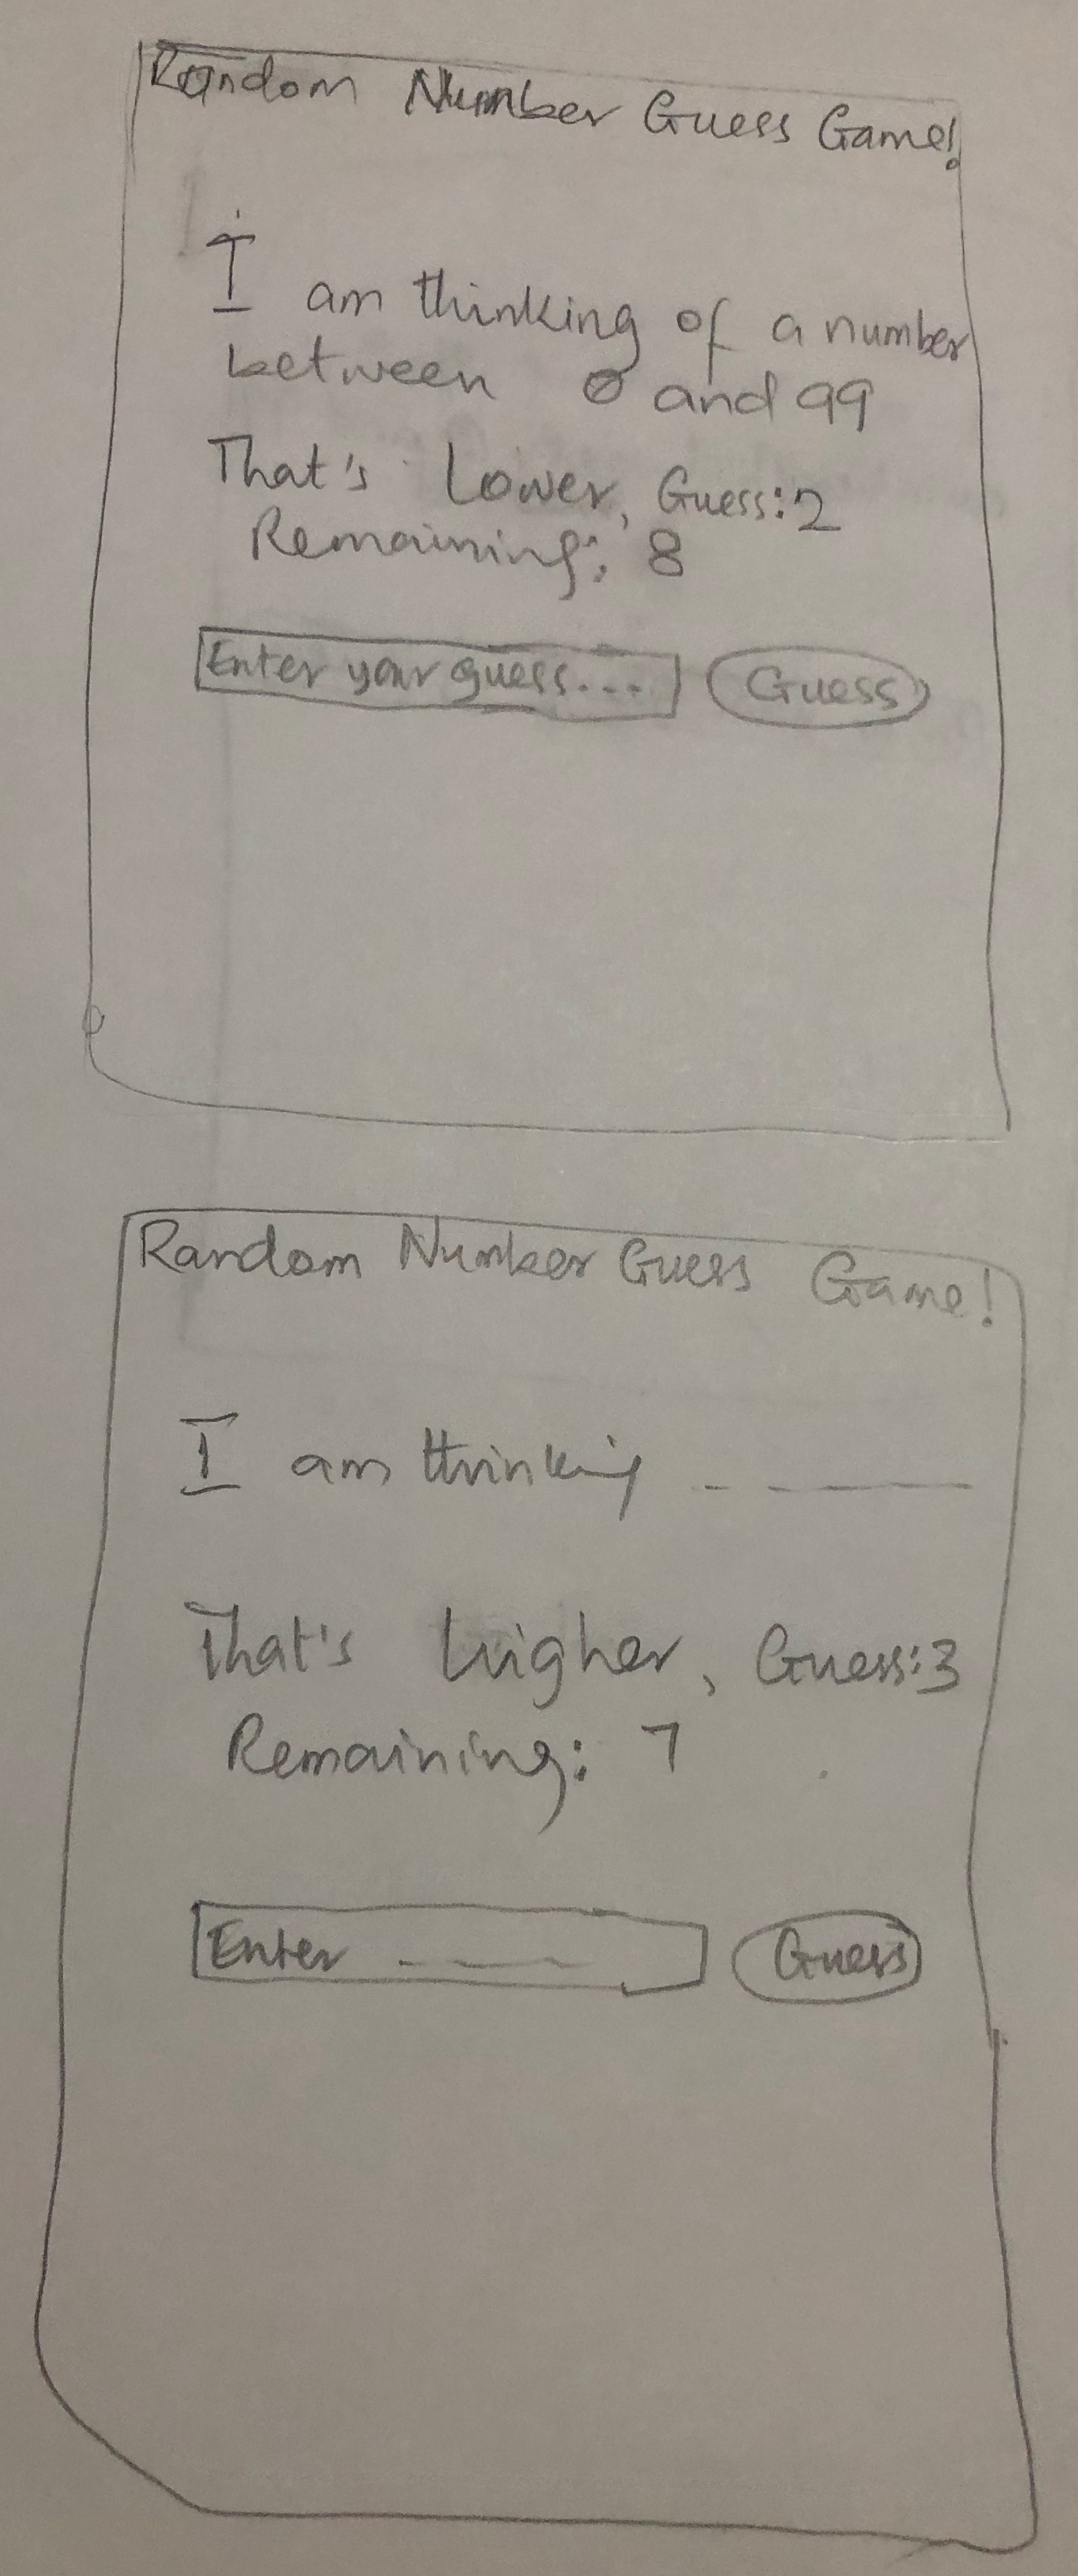 Random Number Guess Game!
I am thinking of a number
between 0 and 99
That's Lower, Guess:2
Remaining: 8
Enter your guess... Guess
Random Number Guess Game!
I am thinking _ ___
That's higher, Guess:3
Remaining: 7
Enter _ ___ Guess